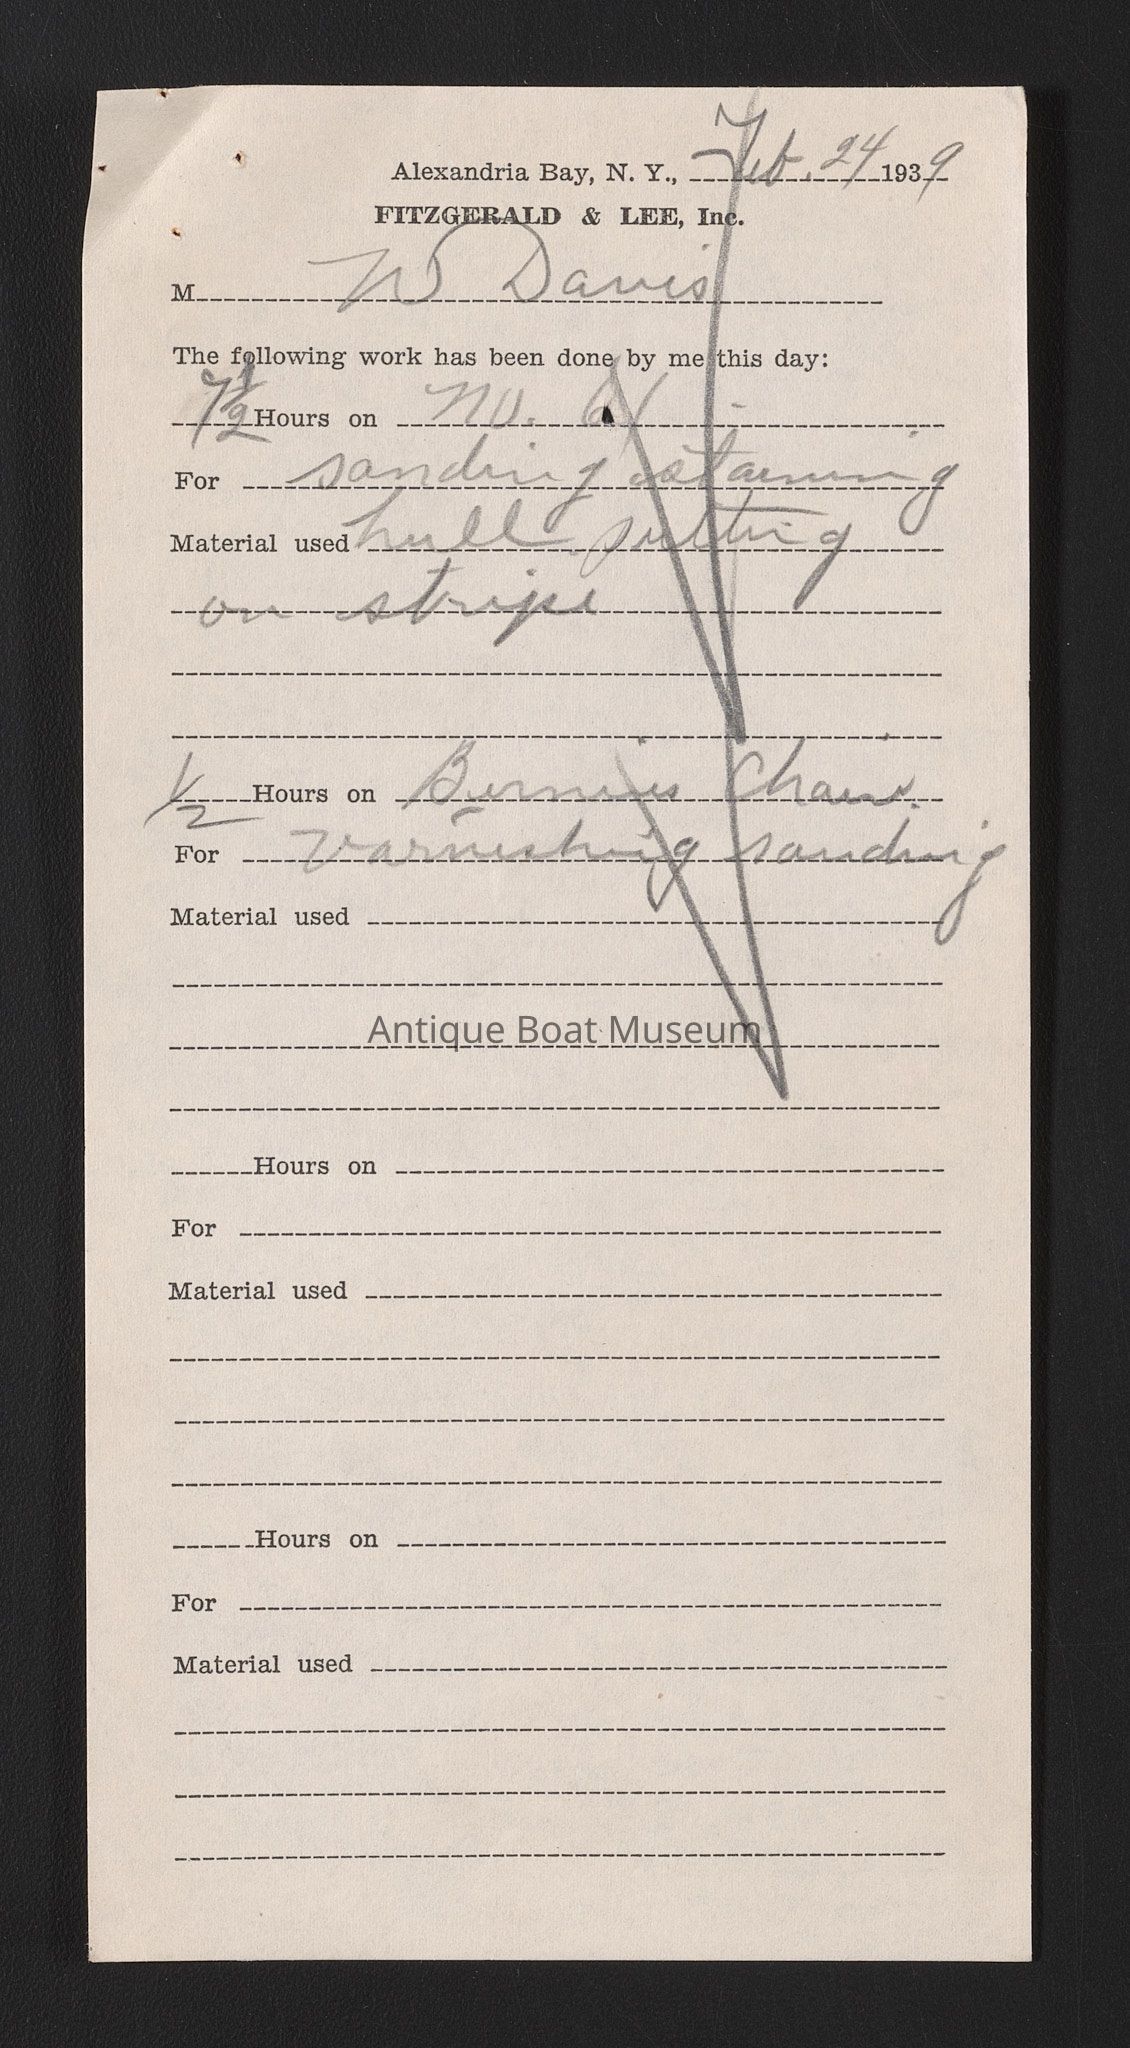 Alexandria Bay, N. Y., Feb. 24 1939
FITZGERALD & LEE, Inc.
M W Davis
The following work has been done by me this day:
7 1/2 Hours on No.
For sanding staining
Material used hull putting
on stripe
1/2 Hours on Bernies Chair.
For varnishing sanding
Material used
Antique Boat Museum
Hours on
For
Material used
Hours on
For
Material used